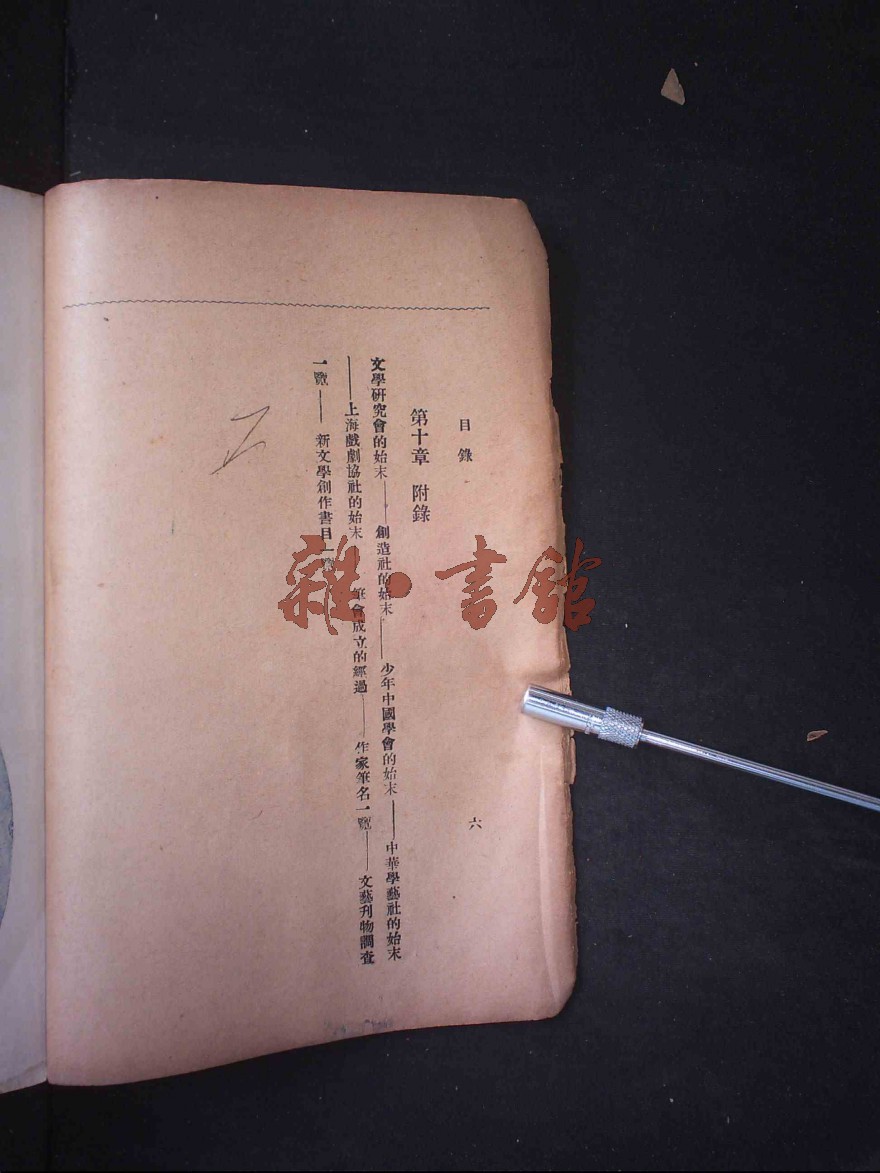 目錄
六
第十章 附錄
文學研究會的始末——創造社的始末——少年中國學會的始末——中華學藝社的始末
——上海戲劇協社的始末——筆會成立的經過——作家筆名一覽——文藝刊物調查
一覽——新文學創作書目一覽
雜·書館